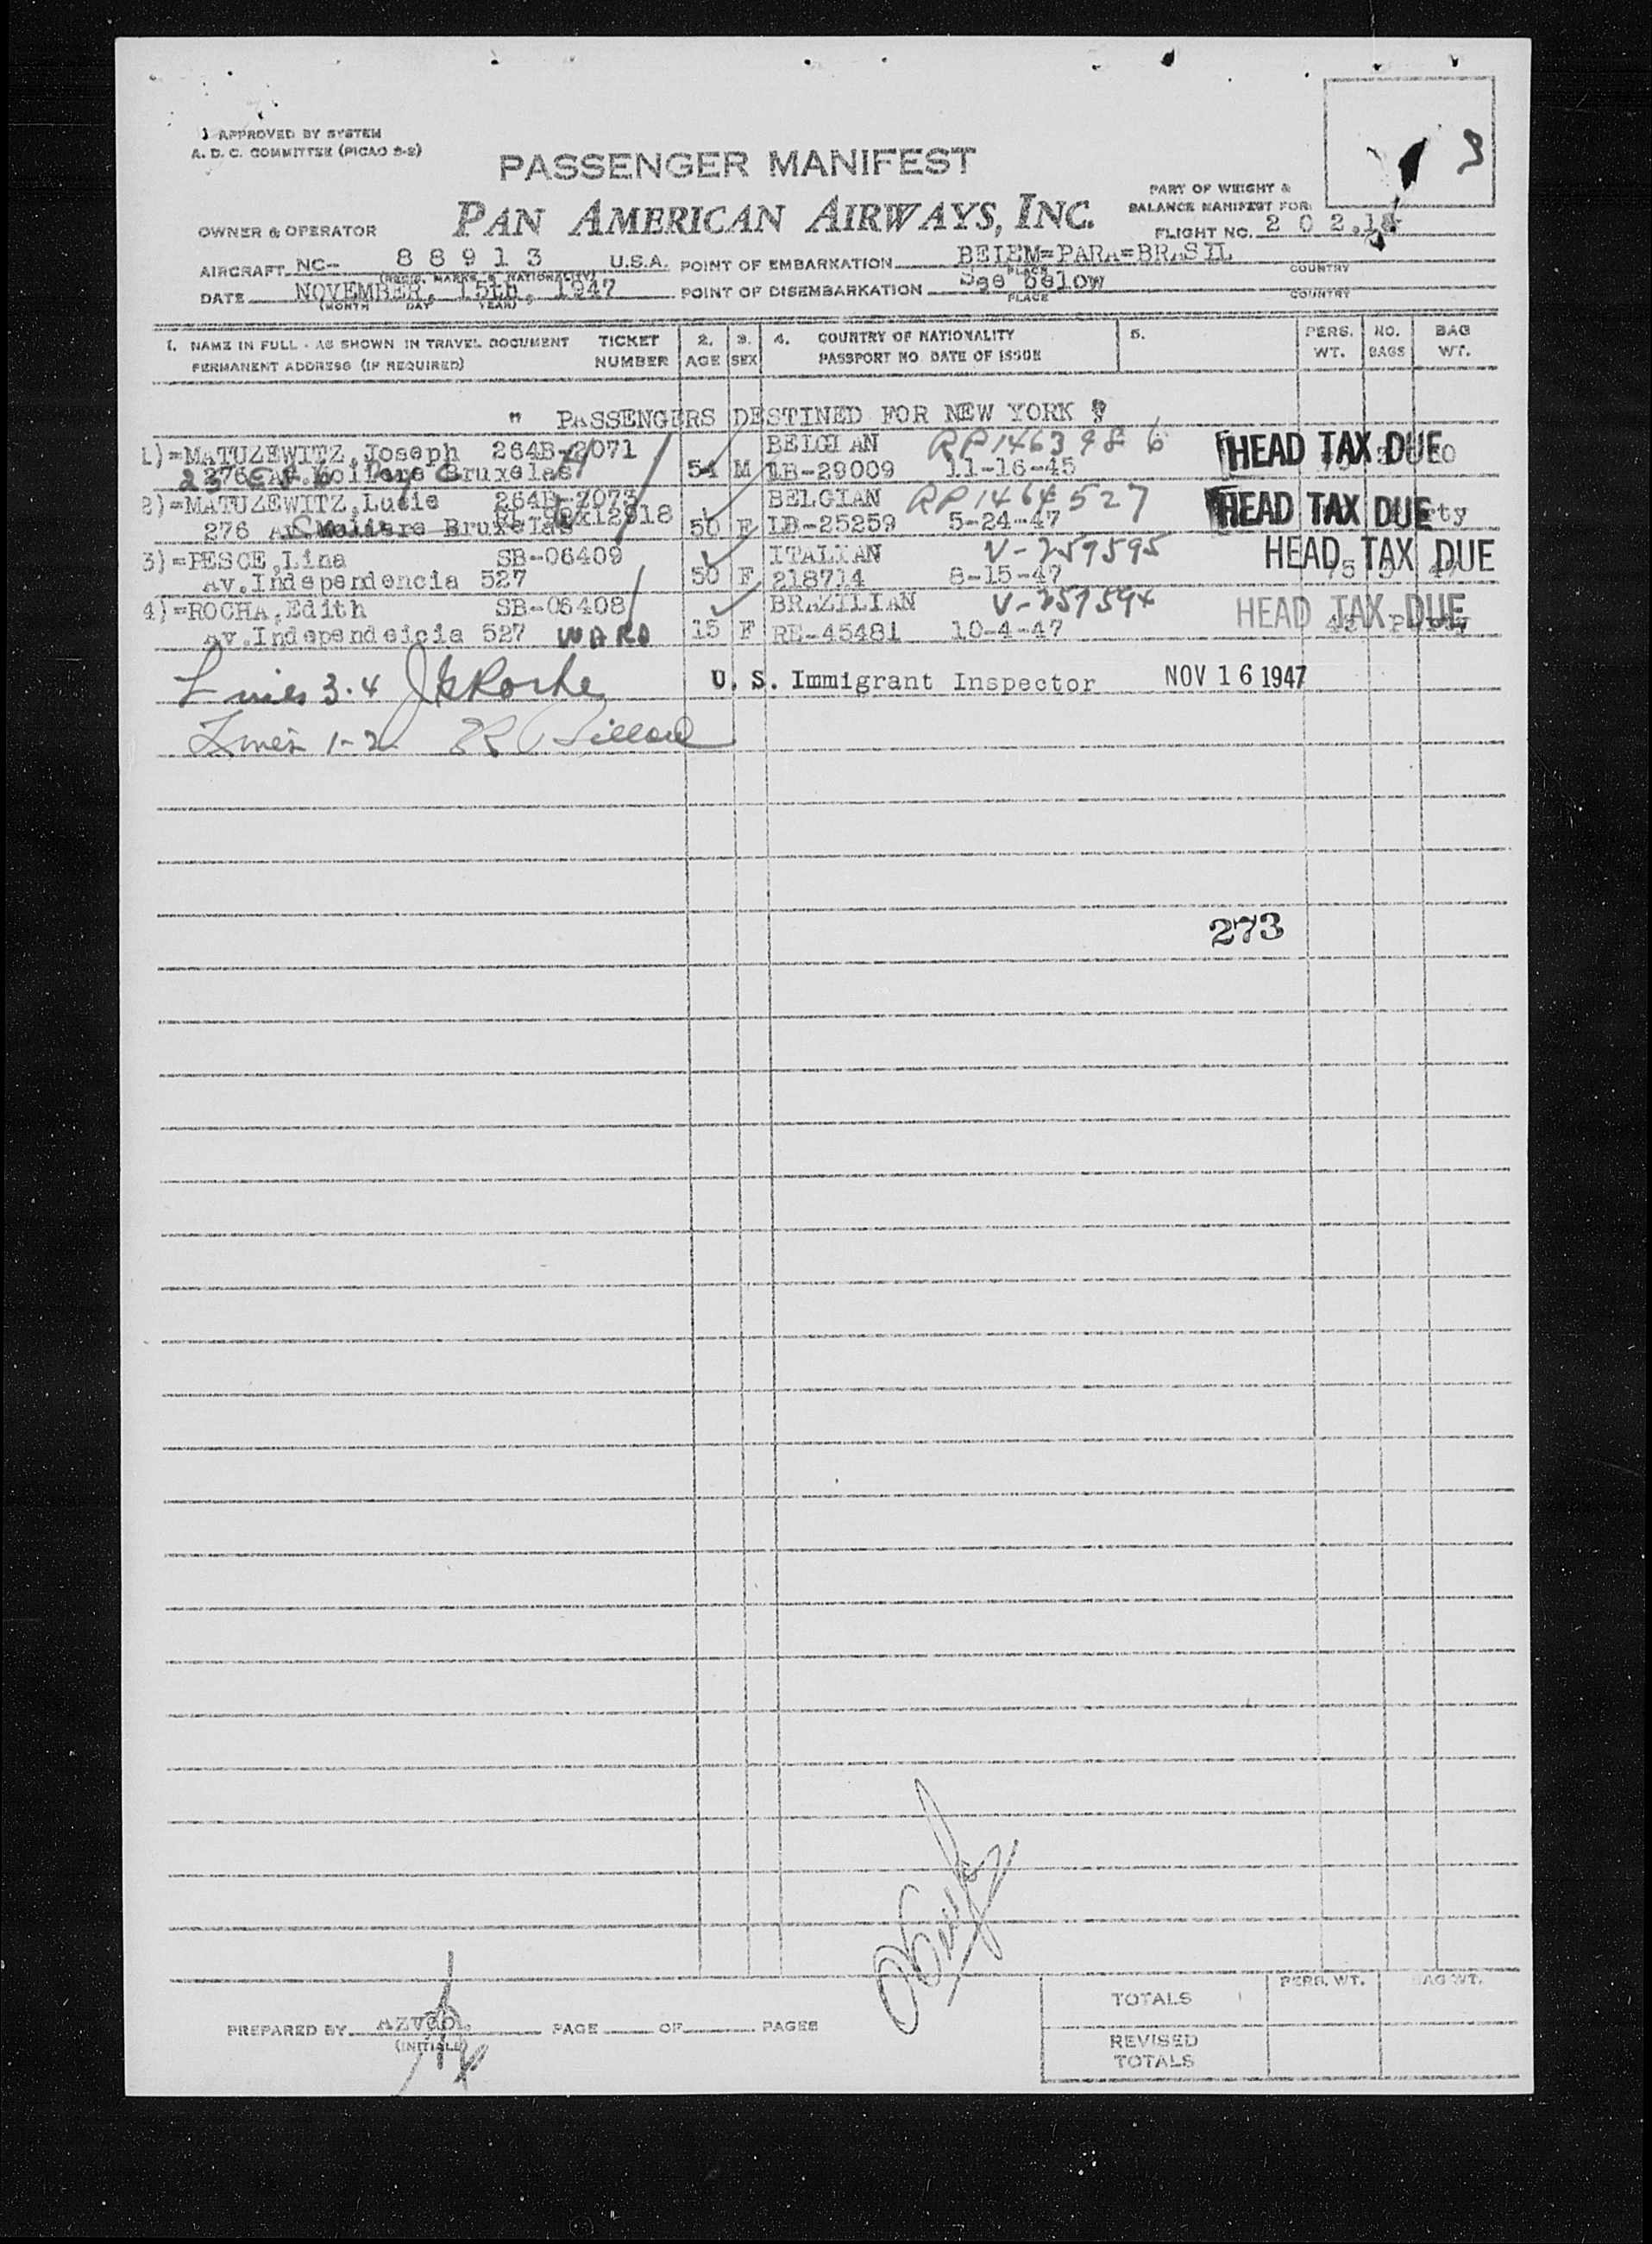 3
APPROVED BY SYSTEM
A. D. C. COMMITTEE (PICAO 5-2)
PASSENGER MANIFEST
PART OF WEIGHT &
BALANCE MANIFEST FOR
OWNER & OPERATOR PAN AMERICAN AIRWAYS, INC. FLIGHT NO. 2 0 2.15
AIRCRAFT NC- 8 8 9 1 3 U.S.A. POINT OF EMBARKATION BELEM=PARA=BRASIL
(REGIS. MARKS & NATIONALITY) PLACE COUNTRY
DATE NOVEMBER, 15th, 1947 POINT OF DISEMBARKATION See below
(MONTH DAY YEAR) PLACE COUNTRY
1. NAME IN FULL - AS SHOWN IN TRAVEL DOCUMENT TICKET 2. 3. 4. COUNTRY OF NATIONALITY 5. PERS. NO. BAG
PERMANENT ADDRESS (IF REQUIRED) NUMBER AGE SEX PASSPORT NO DATE OF ISSUE WT. BAGS WT.
" PASSENGERS DESTINED FOR NEW YORK "
1)=MATUZEWITZ,Joseph 264B-2071 BELGIAN RP1463986 HEAD TAX DUE
276 Av. Moliere Bruxelas 54 M LB-29009 11-16-45
2)=MATUZEWITZ,Lucie 264B-2073 BELGIAN RP1464527 HEAD TAX DUE
276 Av. Moliere Bruxelas 50 F LB-25259 5-24-47
3)=PESCE,Lina SB-06409 ITALIAN V-259595 HEAD TAX DUE
Av.Independencia 527 50 F 218714 8-15-47
4)=ROCHA,Edith SB-06408 BRAZILIAN V-259594 HEAD TAX DUE
Av.Independeicia 527 WARD 15 F RE-45481 10-4-47
Lines 3.4 U. S. Immigrant Inspector NOV 16 1947
Lines 1-2
273
PERS. WT. BAG WT.
TOTALS
PREPARED BY PAGE OF PAGES
(INITIALS)
REVISED
TOTALS